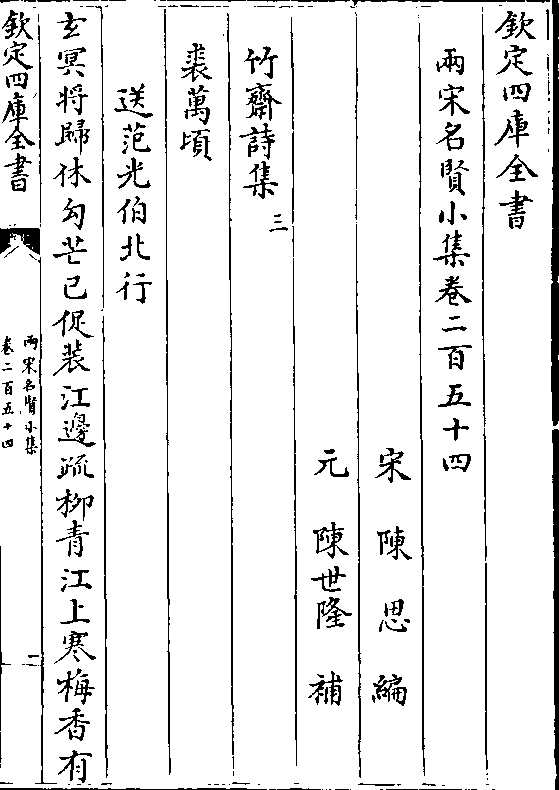 欽定四庫全書
兩宋名賢小集卷二百五十四
宋 陳思 編
元 陳世隆 補
竹齋詩集 三
裘萬頃
送范光伯北行
玄冥將歸休勾芒已促裝江邊疏柳青江上寒梅香有
欽定四庫全書
兩宋名賢小集
卷二百五十四
一